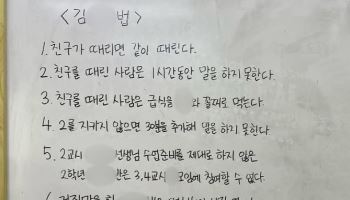 <김 법>
1. 친구가 때리면 같이 때린다.
2. 친구를 때린 사람은 1시간동안 말을 하지 못한다.
3. 친구를 때린 사람은 급식을 과 꼴찌로 먹는다.
4. 2를 지키지 않으면 30분을 추가해 말을 하지 못한다
5. 2교시 선생님 수업준비를 제대로 하지 않은
2학년 반은 3,4교시 코일에 참여할 수 없다.